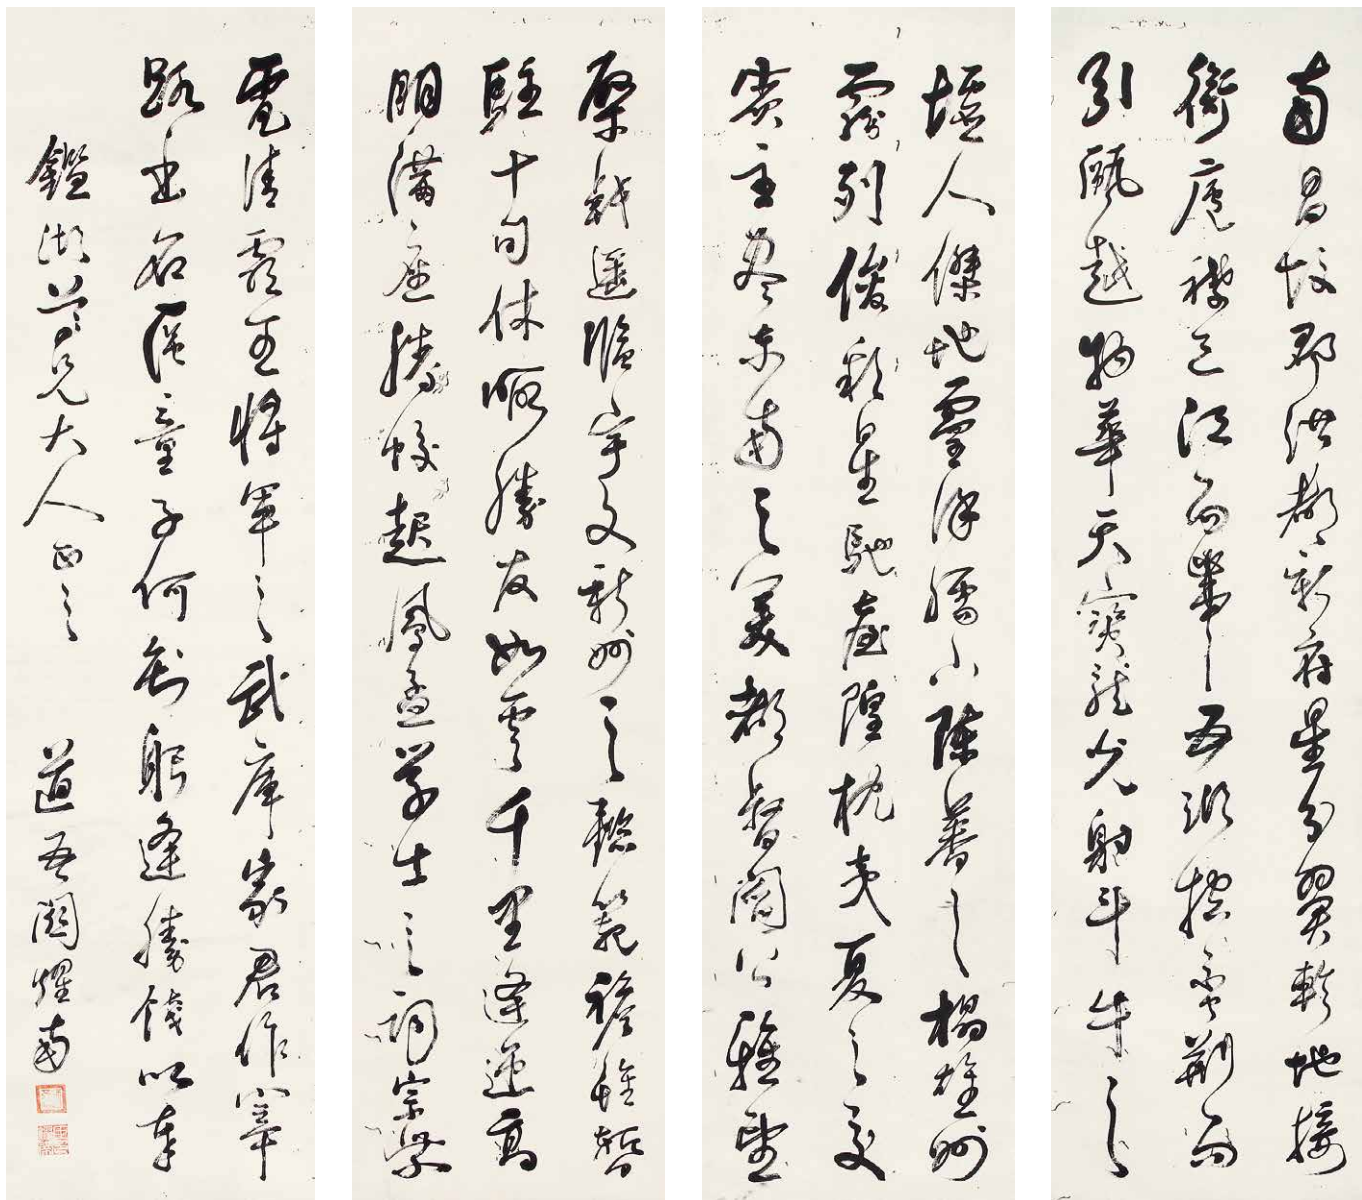 南昌故郡洪都新府星分翼軫地接
衡廬襟三江而帶五湖控蠻荊而
引甌越物華天寶龍光射斗牛之
墟人傑地靈徐孺下陳蕃之榻雄州
霧列俊彩星馳臺隍枕夷夏之交
賓主盡東南之美都督閻公雅望
棨戟遙臨宇文新州之懿範襜帷暫
駐十旬休暇勝友如雲千里逢迎高
朋滿座騰蛟起鳳孟學士之詞宗紫
電清霜王將軍之武庫家君作宰
路出名區童子何知躬逢勝餞以奉
鑑湖尊兄大人正之 道吾燿南